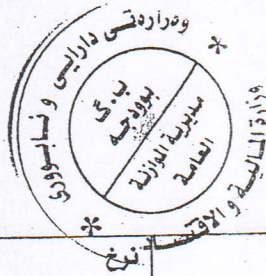 وەزارەتی دارایی و ئابووری
ب.گ
بوودجە
مديرية الموازنة
العامة
وزارة المالية والاقتصاد
نرخ